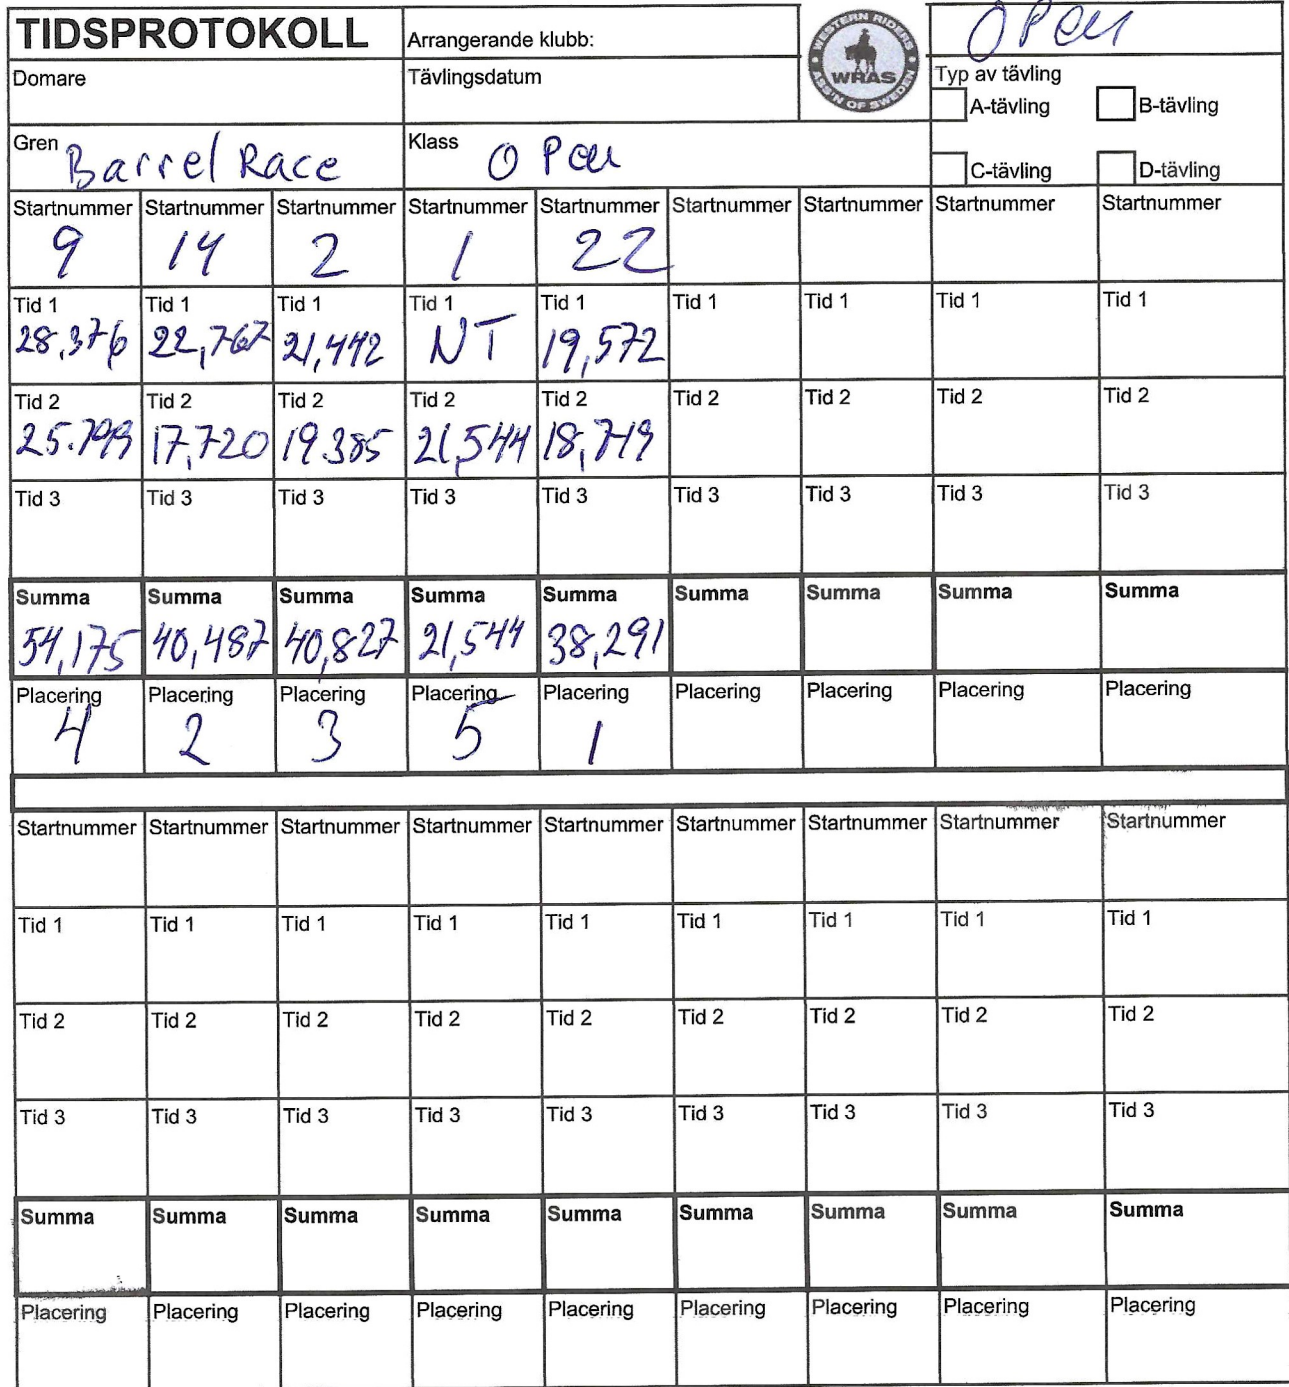 TIDSPROTOKOLL Arrangerande klubb: WESTERN RIDERS ASS'N OF SWEDEN WRAS Open
Domare Tävlingsdatum Typ av tävling
A-tävling B-tävling
Gren Barrel Race Klass Open
C-tävling D-tävling
Startnummer Startnummer Startnummer Startnummer Startnummer Startnummer Startnummer Startnummer Startnummer
9 14 2 1 22
Tid 1 Tid 1 Tid 1 Tid 1 Tid 1 Tid 1 Tid 1 Tid 1 Tid 1
28,376 22,767 21,442 NT 19,572
Tid 2 Tid 2 Tid 2 Tid 2 Tid 2 Tid 2 Tid 2 Tid 2 Tid 2
25.799 17,720 19.385 21,544 18,719
Tid 3 Tid 3 Tid 3 Tid 3 Tid 3 Tid 3 Tid 3 Tid 3 Tid 3
Summa Summa Summa Summa Summa Summa Summa Summa Summa
54,175 40,487 40,827 21,544 38,291
Placering Placering Placering Placering Placering Placering Placering Placering Placering
4 2 3 5 1
Startnummer Startnummer Startnummer Startnummer Startnummer Startnummer Startnummer Startnummer Startnummer
Tid 1 Tid 1 Tid 1 Tid 1 Tid 1 Tid 1 Tid 1 Tid 1 Tid 1
Tid 2 Tid 2 Tid 2 Tid 2 Tid 2 Tid 2 Tid 2 Tid 2 Tid 2
Tid 3 Tid 3 Tid 3 Tid 3 Tid 3 Tid 3 Tid 3 Tid 3 Tid 3
Summa Summa Summa Summa Summa Summa Summa Summa Summa
Placering Placering Placering Placering Placering Placering Placering Placering Placering